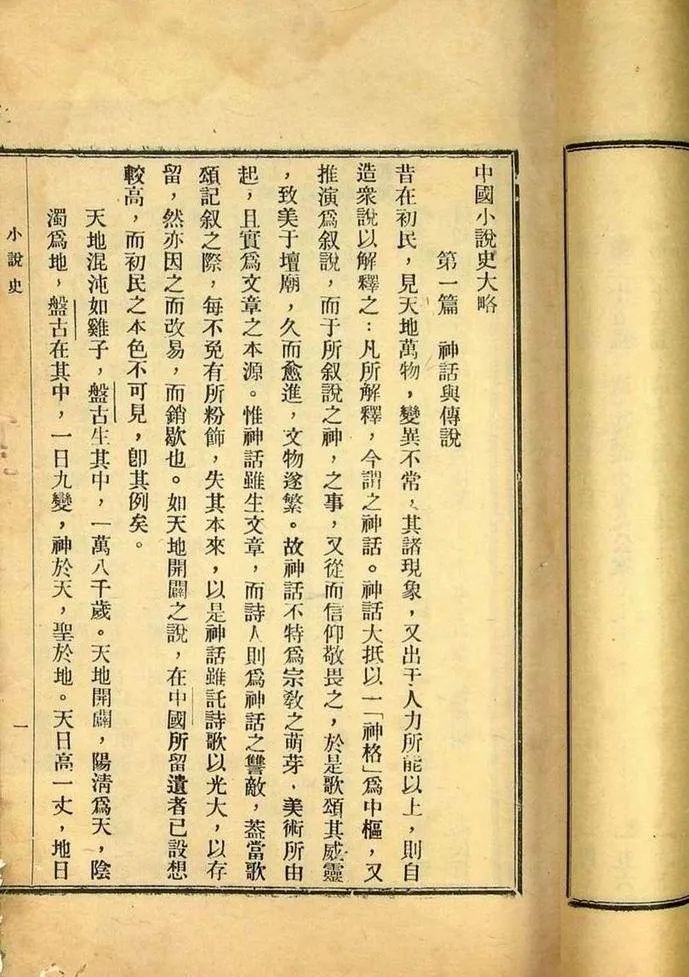 中國小說史大略
第一篇　神話與傳說
昔在初民，見天地萬物，變異不常，其諸現象，又出于人力所能以上，則自
造衆說以解釋之：凡所解釋，今謂之神話。神話大抵以一「神格」爲中樞，又
推演爲叙說，而于所叙說之神，之事，又從而信仰敬畏之，於是歌頌其威靈
，致美于壇廟，久而愈進，文物遂繁。故神話不特爲宗敎之萌芽，美術所由
起，且實爲文章之本源。惟神話雖生文章，而詩人則爲神話之讐敵，葢當歌
頌記叙之際，每不免有所粉飾，失其本來，以是神話雖託詩歌以光大，以存
留，然亦因之而改易，而銷歇也。如天地開闢之說，在中國所留遺者已設想
較高，而初民之本色不可見，卽其例矣。
天地混沌如雞子，盤古生其中，一萬八千歲。天地開闢，陽清爲天，陰
濁爲地，盤古在其中，一日九變，神於天，聖於地。天日高一丈，地日
小說史
一